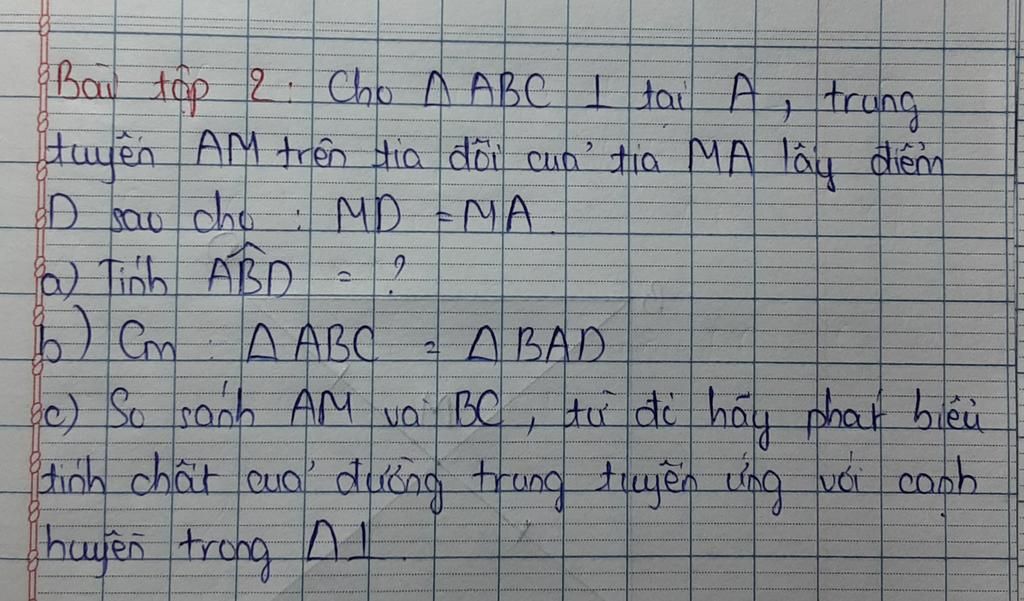 Bài tập 2: Cho Δ ABC ⊥ tại A, trung
tuyến AM trên tia đối của tia MA lấy điểm
D sao cho: MD = MA.
a) Tính ABD̂ = ?
b) Cm: Δ ABC = Δ BAD
c) So sánh AM và BC, từ đó hãy phát biểu
tính chất của đường trung tuyến ứng với cạnh
huyền trong Δ⊥.